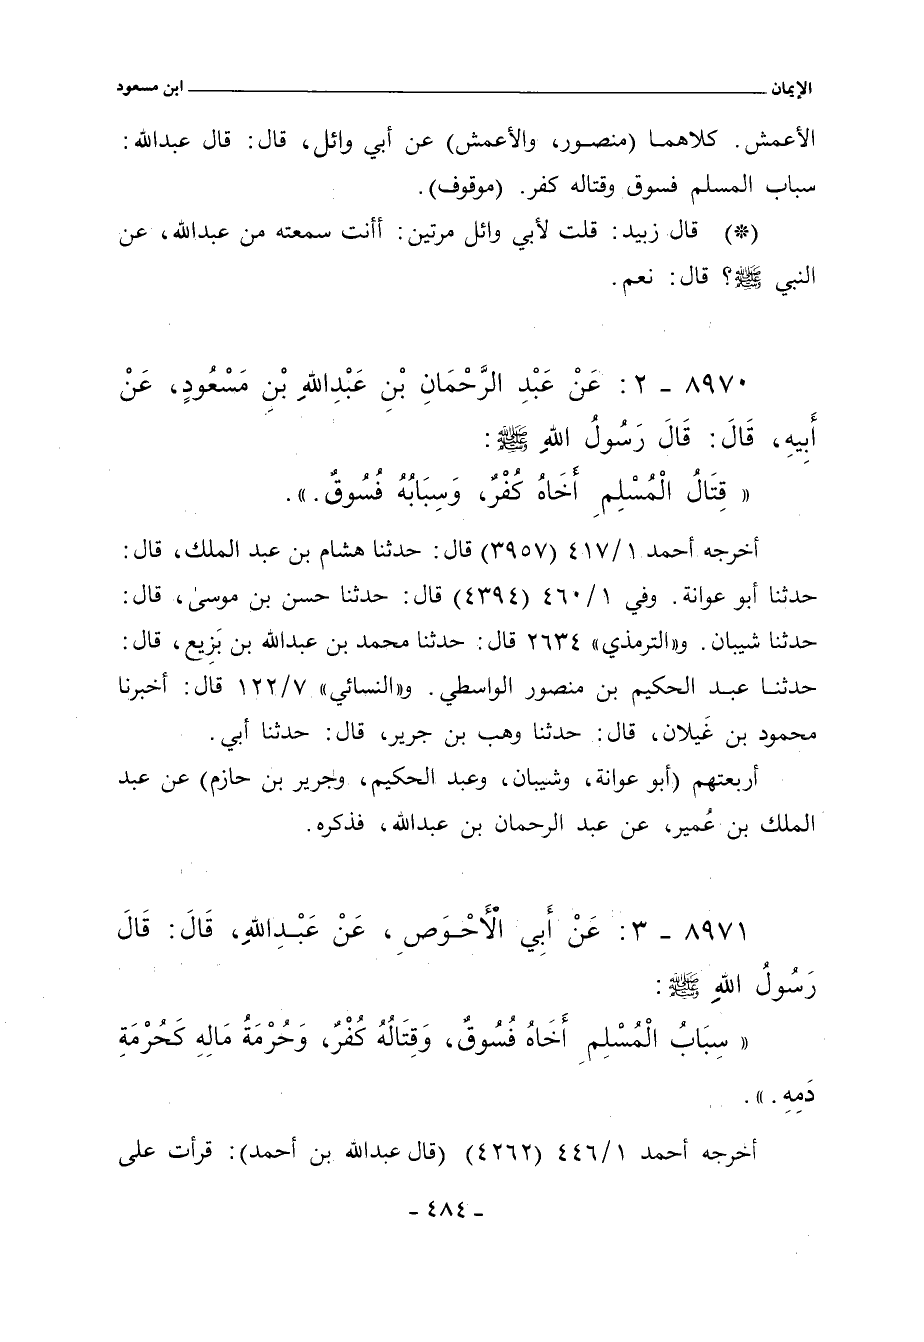 الإيمان ــــــــــــــــــــــــــــــــــــــــ ابن مسعود
الأعمش. كلاهمـا (منصـور، والأعمش) عن أبي وائل، قال: قال عبدالله:
سباب المسلم فسوق وقتاله كفر. (موقوف).
(*) قال زبيد: قلت لأبي وائل مرتين: أأنت سمعته من عبدالله، عن
النبي ﷺ؟ قال: نعم.
٨٩٧٠ ـ ٢: عَنْ عَبْدِ الرَّحْمَانِ بْنِ عَبْدِاللهِ بْنِ مَسْعُودٍ، عَنْ
أَبِيهِ، قَالَ: قَالَ رَسُولُ اللهِ ﷺ:
« قِتَالُ الْمُسْلِمِ أَخَاهُ كُفْرٌ، وَسِبَابُهُ فُسُوقٌ.».
أخرجه أحمد ٤١٧/١ (٣٩٥٧) قال: حدثنا هشام بن عبد الملك، قال:
حدثنا أبو عوانة. وفي ٤٦٠/١ (٤٣٩٤) قال: حدثنا حسن بن موسىٰ، قال:
حدثنا شيبان. و«الترمذي» ٢٦٣٤ قال: حدثنا محمد بن عبدالله بن بَزِيع، قال:
حدثنـا عبـد الحكيم بن منصور الواسطي. و«النسائي» ١٢٢/٧ قال: أخبرنا
محمود بن غَيلان، قال: حدثنا وهب بن جرير، قال: حدثنا أبي.
أربعتهم (أبو عوانة، وشيبان، وعبد الحكيم، وجرير بن حازم) عن عبد
الملك بن عُمير، عن عبد الرحمان بن عبدالله، فذكره.
٨٩٧١ ـ ٣: عَنْ أَبِي الْأَحْـوَصِ، عَنْ عَبْـدِاللهِ، قَالَ: قَالَ
رَسُولُ اللهِ ﷺ:
« سِبَابُ الْمُسْلِمِ أَخَاهُ فُسُوقٌ، وَقِتَالُهُ كُفْرٌ، وَحُرْمَةُ مَالِهِ كَحُرْمَةِ
دَمِهِ.».
أخرجه أحمد ٤٤٦/١ (٤٢٦٢) (قال عبدالله بن أحمد): قرأت على
ـ ٤٨٤ ـ